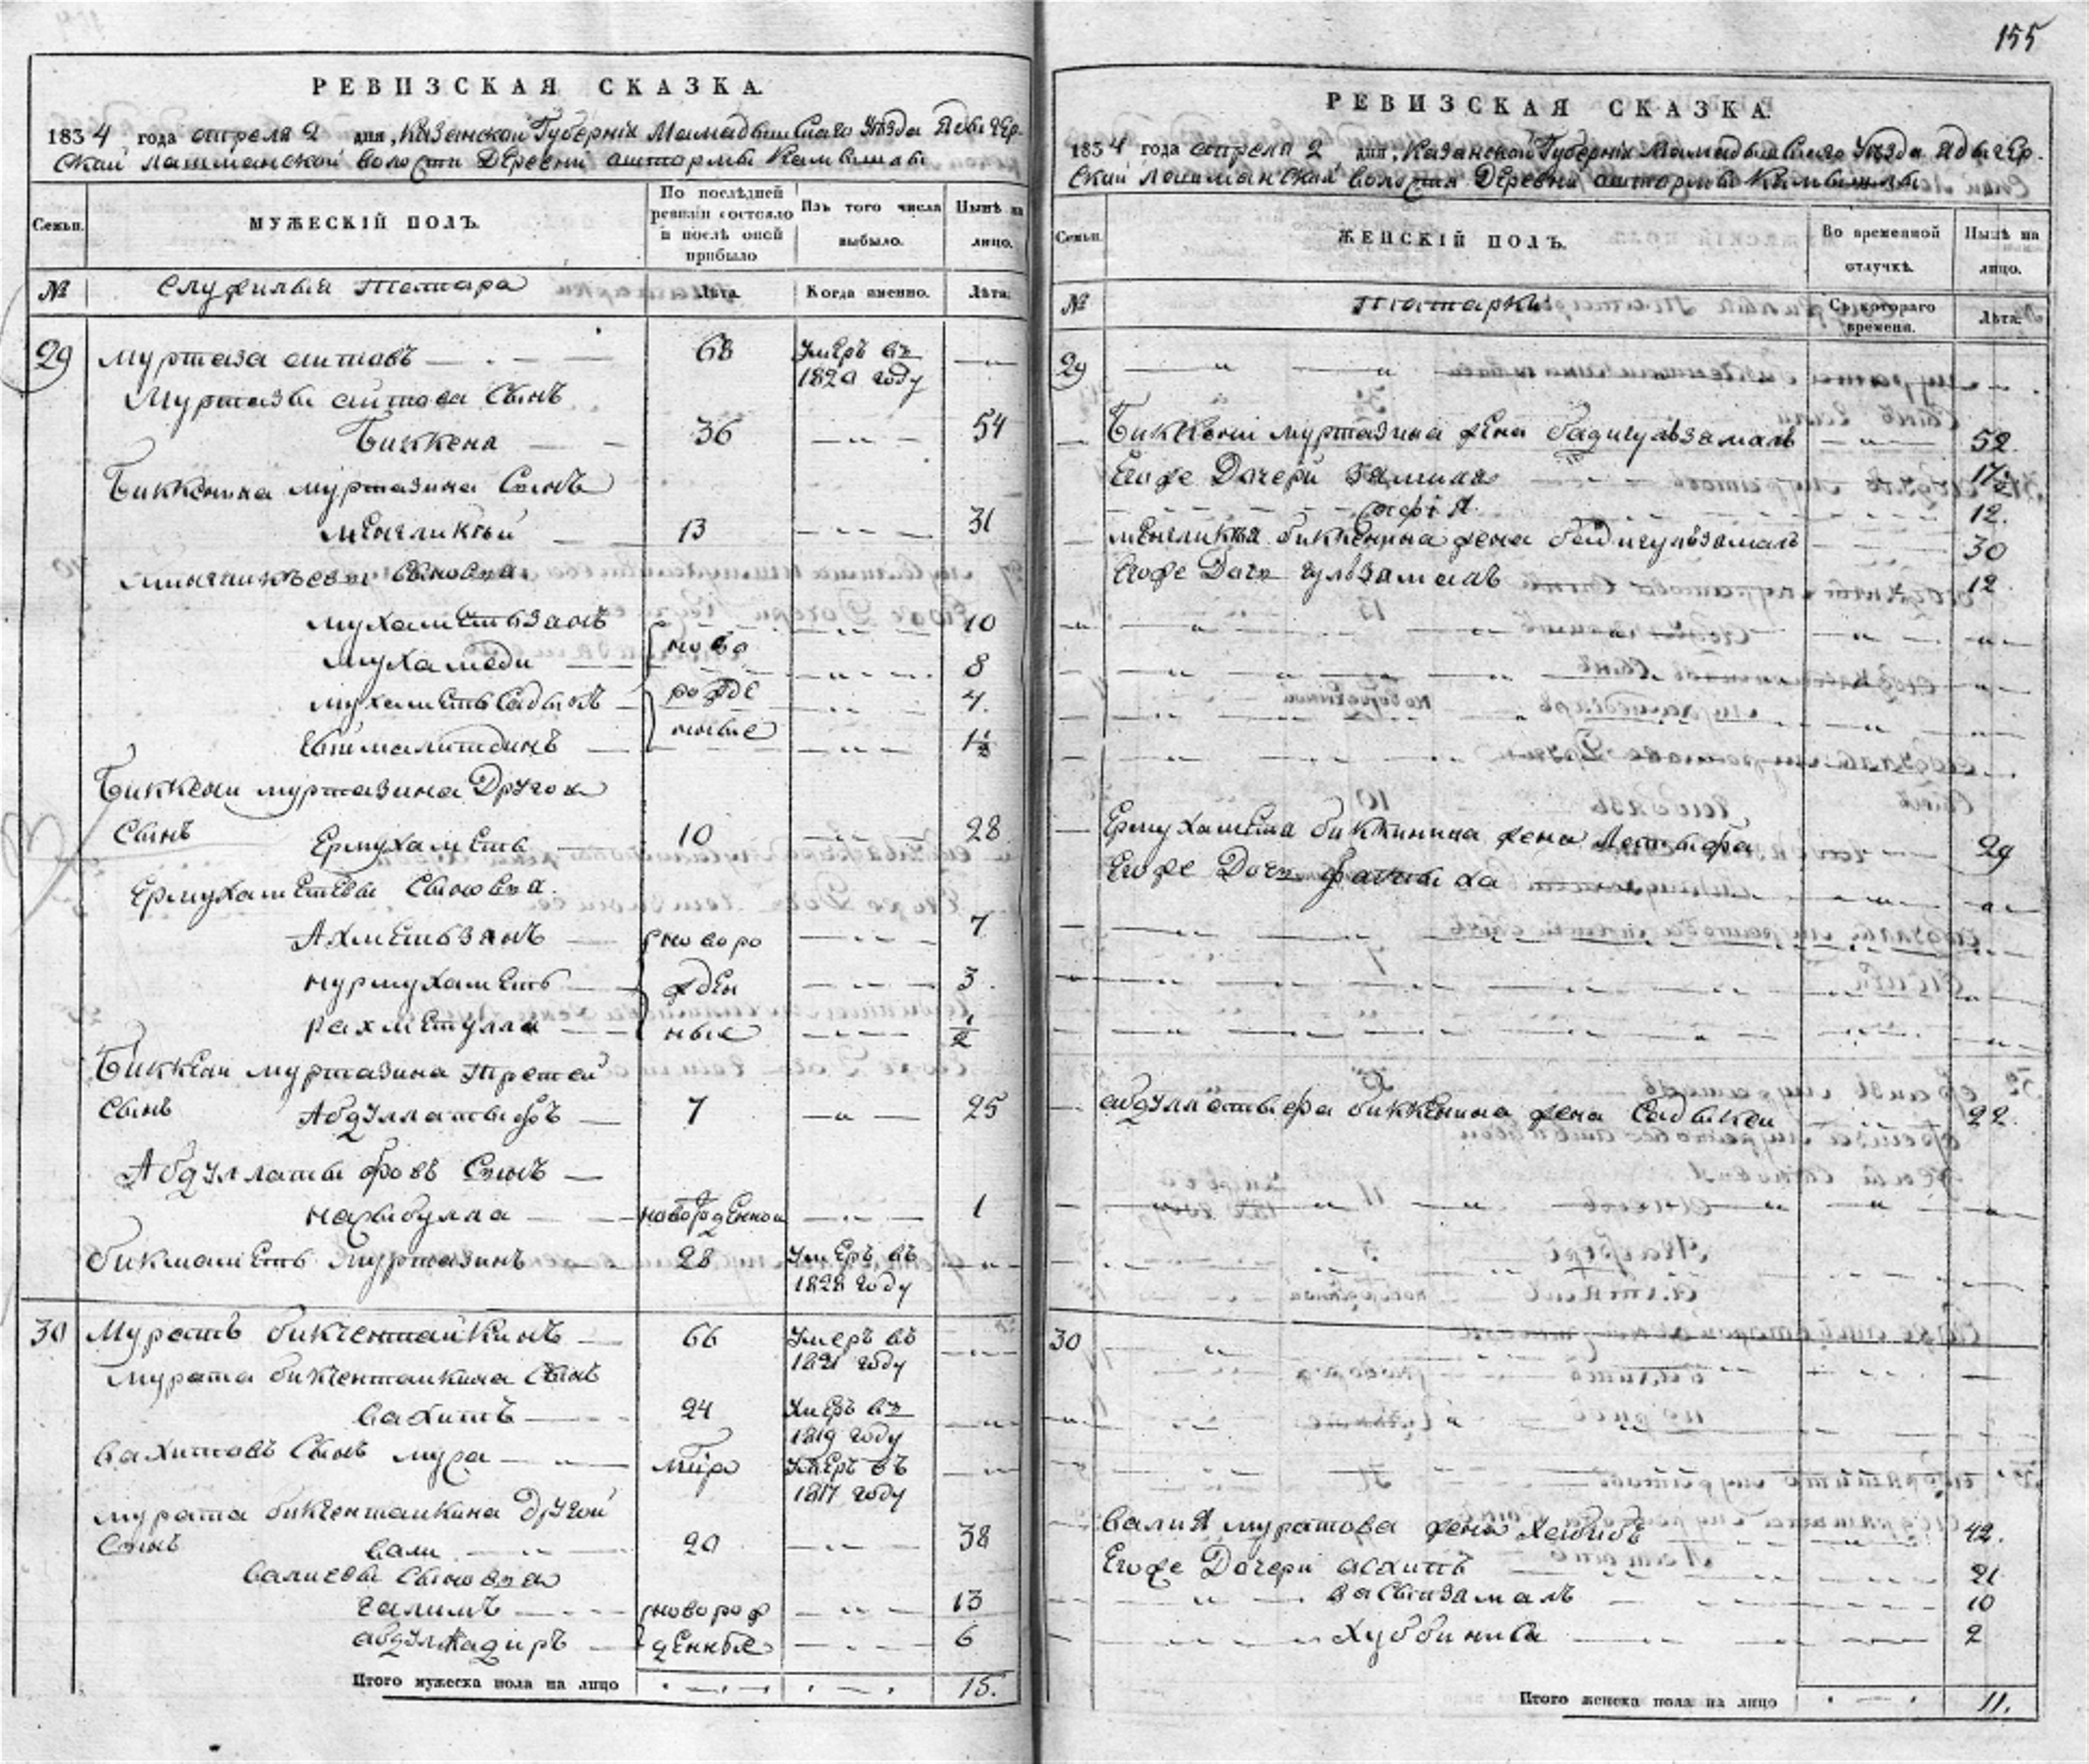 155
РЕВИЗСКАЯ СКАЗКА.
1834 года апреля 2 дня, Казанской Губернiи Мамадышскаго Уезда
ской лашманской волости Деревни аштормы Камышлы
Семьи. МУЖЕСКIЙ ПОЛЪ. По последней ревизiи состояло и после оной прибыло Изъ того числа выбыло. Ныне на лицо.
№ Служилыя Татара Лета. Когда именно. Лета.
29 Муртаза аитовъ 68 Умеръ въ 1820 году
Муртазы аитова Сынъ
Биккена 36 54
Биккенина муртазина Сынъ
менгликей 13 31
Сыновья
мухаметьзанъ ново 10
мухамеди 8
мухаметьсадыкъ рожде 4.
нные 1½
Биккени муртазина Другои
Сынъ Ермухаметь 10 28
Ермухаметевы Сыновья.
Ахметьзянъ новоро 7
нурмухаметь жден 3.
рахметулла ные ½
Биккени муртазина третей
Сынъ Абдуллатыфъ 7 25
Абдуллатыфовъ Сынъ
новорожденнои 1
бикмаметь муртазинъ 28 Умеръ въ 1828 году
30 Муратъ бикчентайкинъ 66 Умеръ въ 1821 году
мурата бикчентаикина Сынъ
вахитъ 24 Умеръ въ 1819 году
вахитовъ Сынъ муса Умеръ въ 1817 году
мурата бикчентаикина Другой
Сынъ вали 20 38
валиевы Сыновья
галимъ новорож 13
абдулкадиръ денные 6
Итого мужеска пола на лицо 15.
РЕВИЗСКАЯ СКАЗКА.
1834 года апреля 2 дня, Казанской Губернiи Мамадышскаго Уезда
ской лашманской волости Деревни аштормы Камышлы
Семьи. ЖЕНСКIЙ ПОЛЪ. Во временной отлучкѣ. Ныне на лицо.
№ татарки Съ котораго времени. Лета.
29
Биккени муртазина жена бадигульзамалъ 52.
Егоже Дочери 17½
сафiя 12.
менгликея биккенина жена бадигульзамалъ 30
Егоже Дочь гульзамалъ 12
Ермухамета биккинина жена Латыфа 29
Егоже Дочь
абдуллатыфа биккенина жена Садыкеи 22.
30
валия муратова жена Хабибъ 42.
Егоже Дочери 21
10
Хуббиниса 2
Итого женска пола на лицо 11.